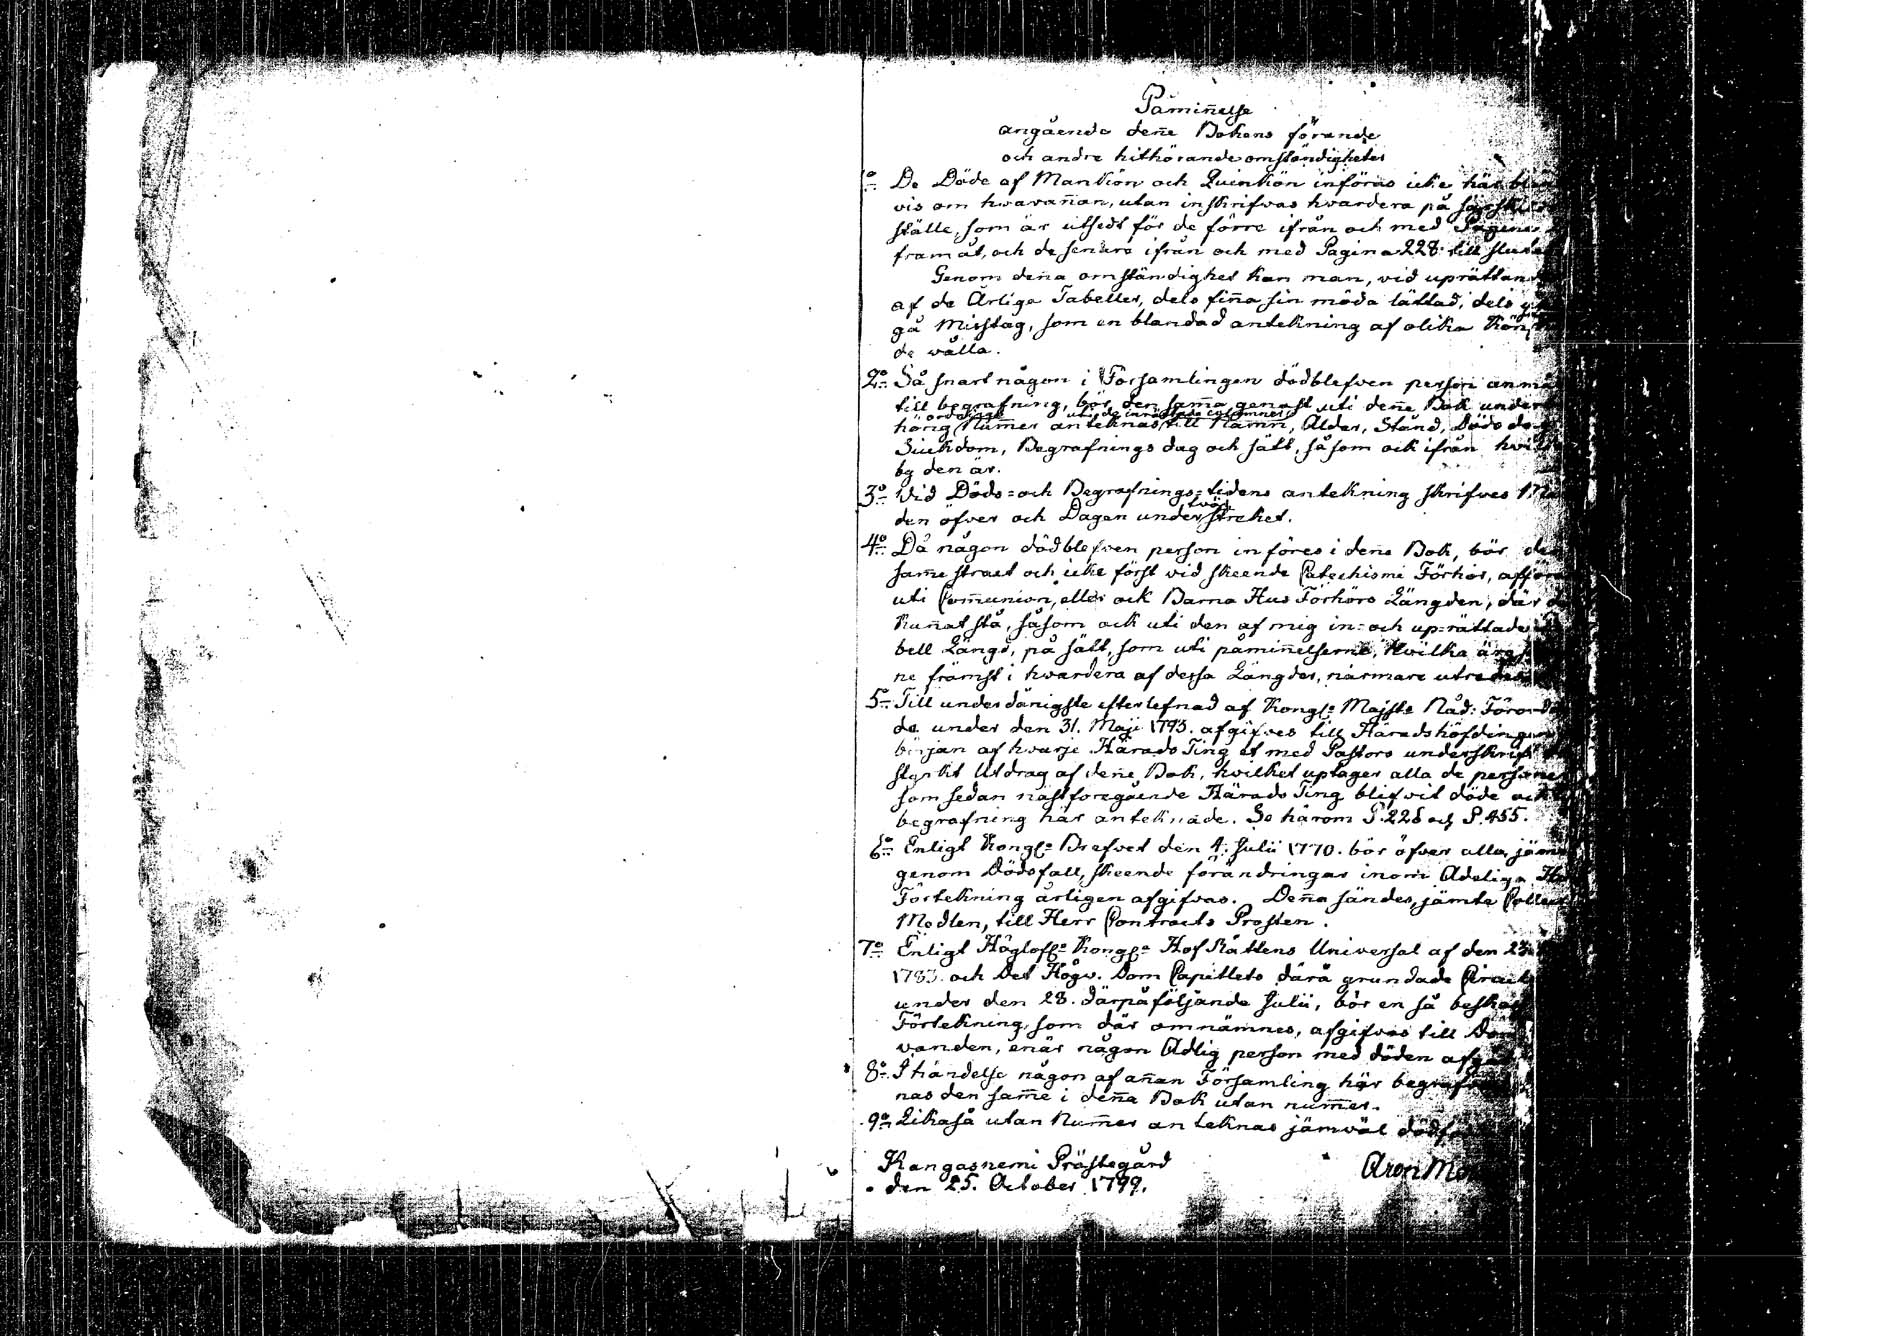 Påmiñelse
angående deñe Bokens förande
och andre hithörande omständigheter
1o De Döde af Mankön och Quinkön införas icke här
vis om hwarañan, utan inskrifvas hvardera på särskildt
ställe, som är utsedt för de förre ifrån och med Pagina
framåt, och de senare ifrån och med Pagina 228 till slutet
Genom deña omständighet kan man, vid uprättande
af de Årliga Tabeller, dels fiña sin möda lättad, dels
gå Misstag, som en blandad antekning af olika Kön
de vålla.
2o Så snart någon i Församlingen dödblefven person
till begrafning, bör den sam̃a genast uti deñe Bok under
ordentligt uti de inrättade columner
hörig Num̃er anteknas till Namn, Ålder, Stånd, Döds dag
Siukdom, Begrafnings dag och sätt, såsom ock ifrån
by den är.
3o Vid Döds- och Begrafnings-tidens antekning skrifves
tvär
den öfver och Dagen under strecket.
4o Då någon dödblefven person införes i deña Bok, bör
sam̃e straxt och icke först vid skeende Catechismi Förhör,
uti Com̃union, eller ock Barna Hus Förhörs Längden, där
kuñat stå, såsom ock uti den af mig in- och up-rättade
bell Längd, på sätt, som uti påmiñelserne, hvilka
ne främst i hvardera af dessa Längder, närmare utredes
5o Till underdånigste efterlefnad af Kongl. Majsts Nåd: Förord
de under den 31. Maji 1793. afgifves till Häradshöfdingen
början af hvarje Härads Ting et med Pastors underskrift
styrkt Utdrag af deñe Bok, hvilket uptager alla de personer
som sedan nästföregående Härads Ting blifvit döde och
begrafning här anteknade. Se härom P. 228 och P. 455.
6o Enligt Kongl. Brefvet den 4. Julii 1770. bör öfver alla,
genom Dödsfall, skeende förändringar inom Adeliga
Förtekning årligen afgifvas. Deña sändes, jämte
Medlen, till Herr Contracts Prosten.
7o Enligt Höglofl. Kongl. Hof Rättens Universal af den
1783. och Det Högv. Dom Capitlets därå grundade
under den 28. därpåföljande Julii, bör en så
Förtekning, som där omnämnes, afgifvas till
vanden, enär någon Adlig person med döden
8o I händelse någon af añan Församling här
nas den sam̃e i deña Bok utan num̃er.
9o Likaså utan Num̃er anteknas jämväl
Kangasnemi Prästegård
den 25. October 1799.
Aron